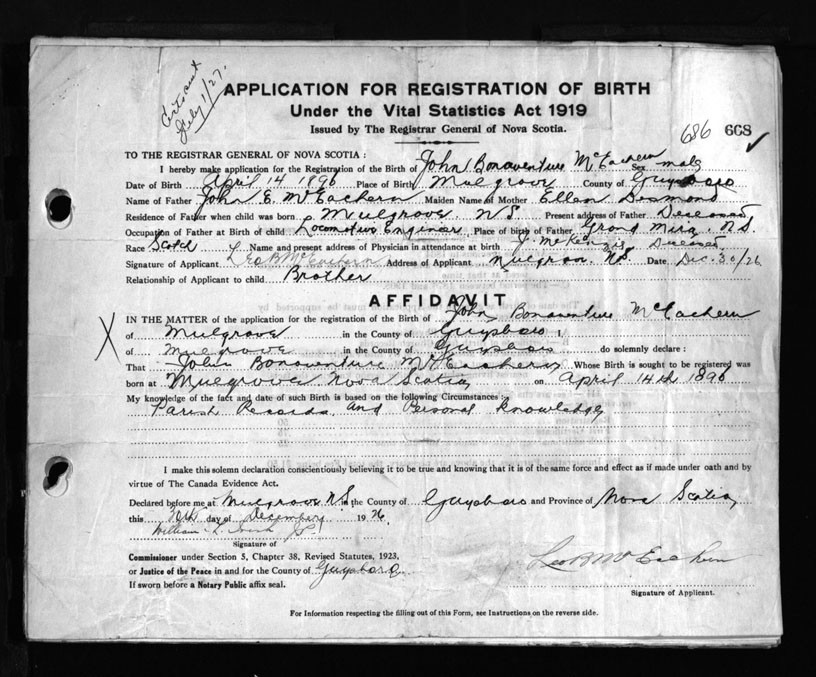 Certs sent
July 1/27.
APPLICATION FOR REGISTRATION OF BIRTH
Under the Vital Statistics Act 1919
Issued by The Registrar General of Nova Scotia.
686 668
TO THE REGISTRAR GENERAL OF NOVA SCOTIA:
I hereby make application for the Registration of the Birth of John Bonaventure McEachern Sex male
Date of Birth April 14 1896 Place of Birth Mulgrove County of Guysboro
Name of Father John E. McEachern Maiden Name of Mother Ellen Desmond
Residence of Father when child was born Mulgrove N.S. Present address of Father Deceased
Occupation of Father at Birth of child Locomotive Engineer Place of birth of Father Grand Mira, N.S.
Race Scotch Name and present address of Physician in attendance at birth J. McKenzie Deceased
Signature of Applicant Leo B McEachern Address of Applicant Mulgrove. N.S. Date Dec. 30/26
Relationship of Applicant to child Brother
AFFIDAVIT
IN THE MATTER of the application for the registration of the Birth of John Bonaventure McEachern
X
of Mulgrove in the County of Guysboro I
of Mulgrove in the County of Guysboro do solemnly declare:
That John Bonaventure McEachern Whose Birth is sought to be registered was
born at Mulgrove Nova Scotia, on April 14th 1896
My knowledge of the fact and date of such Birth is based on the following Circumstances:
Parish Records and Personal Knowledge
I make this solemn declaration conscientiously believing it to be true and knowing that it is of the same force and effect as if made under oath and by
virtue of The Canada Evidence Act.
Declared before me at Mulgrove N.S. in the County of Guysboro and Province of Nova Scotia,
this 30th day of December 1926
William J.P.
Signature of
Commissioner under Section 5, Chapter 38, Revised Statutes, 1923,
or Justice of the Peace in and for the County of Guysboro
If sworn before a Notary Public affix seal.
Leo B McEachern
Signature of Applicant.
For Information respecting the filling out of this Form, see Instructions on the reverse side.